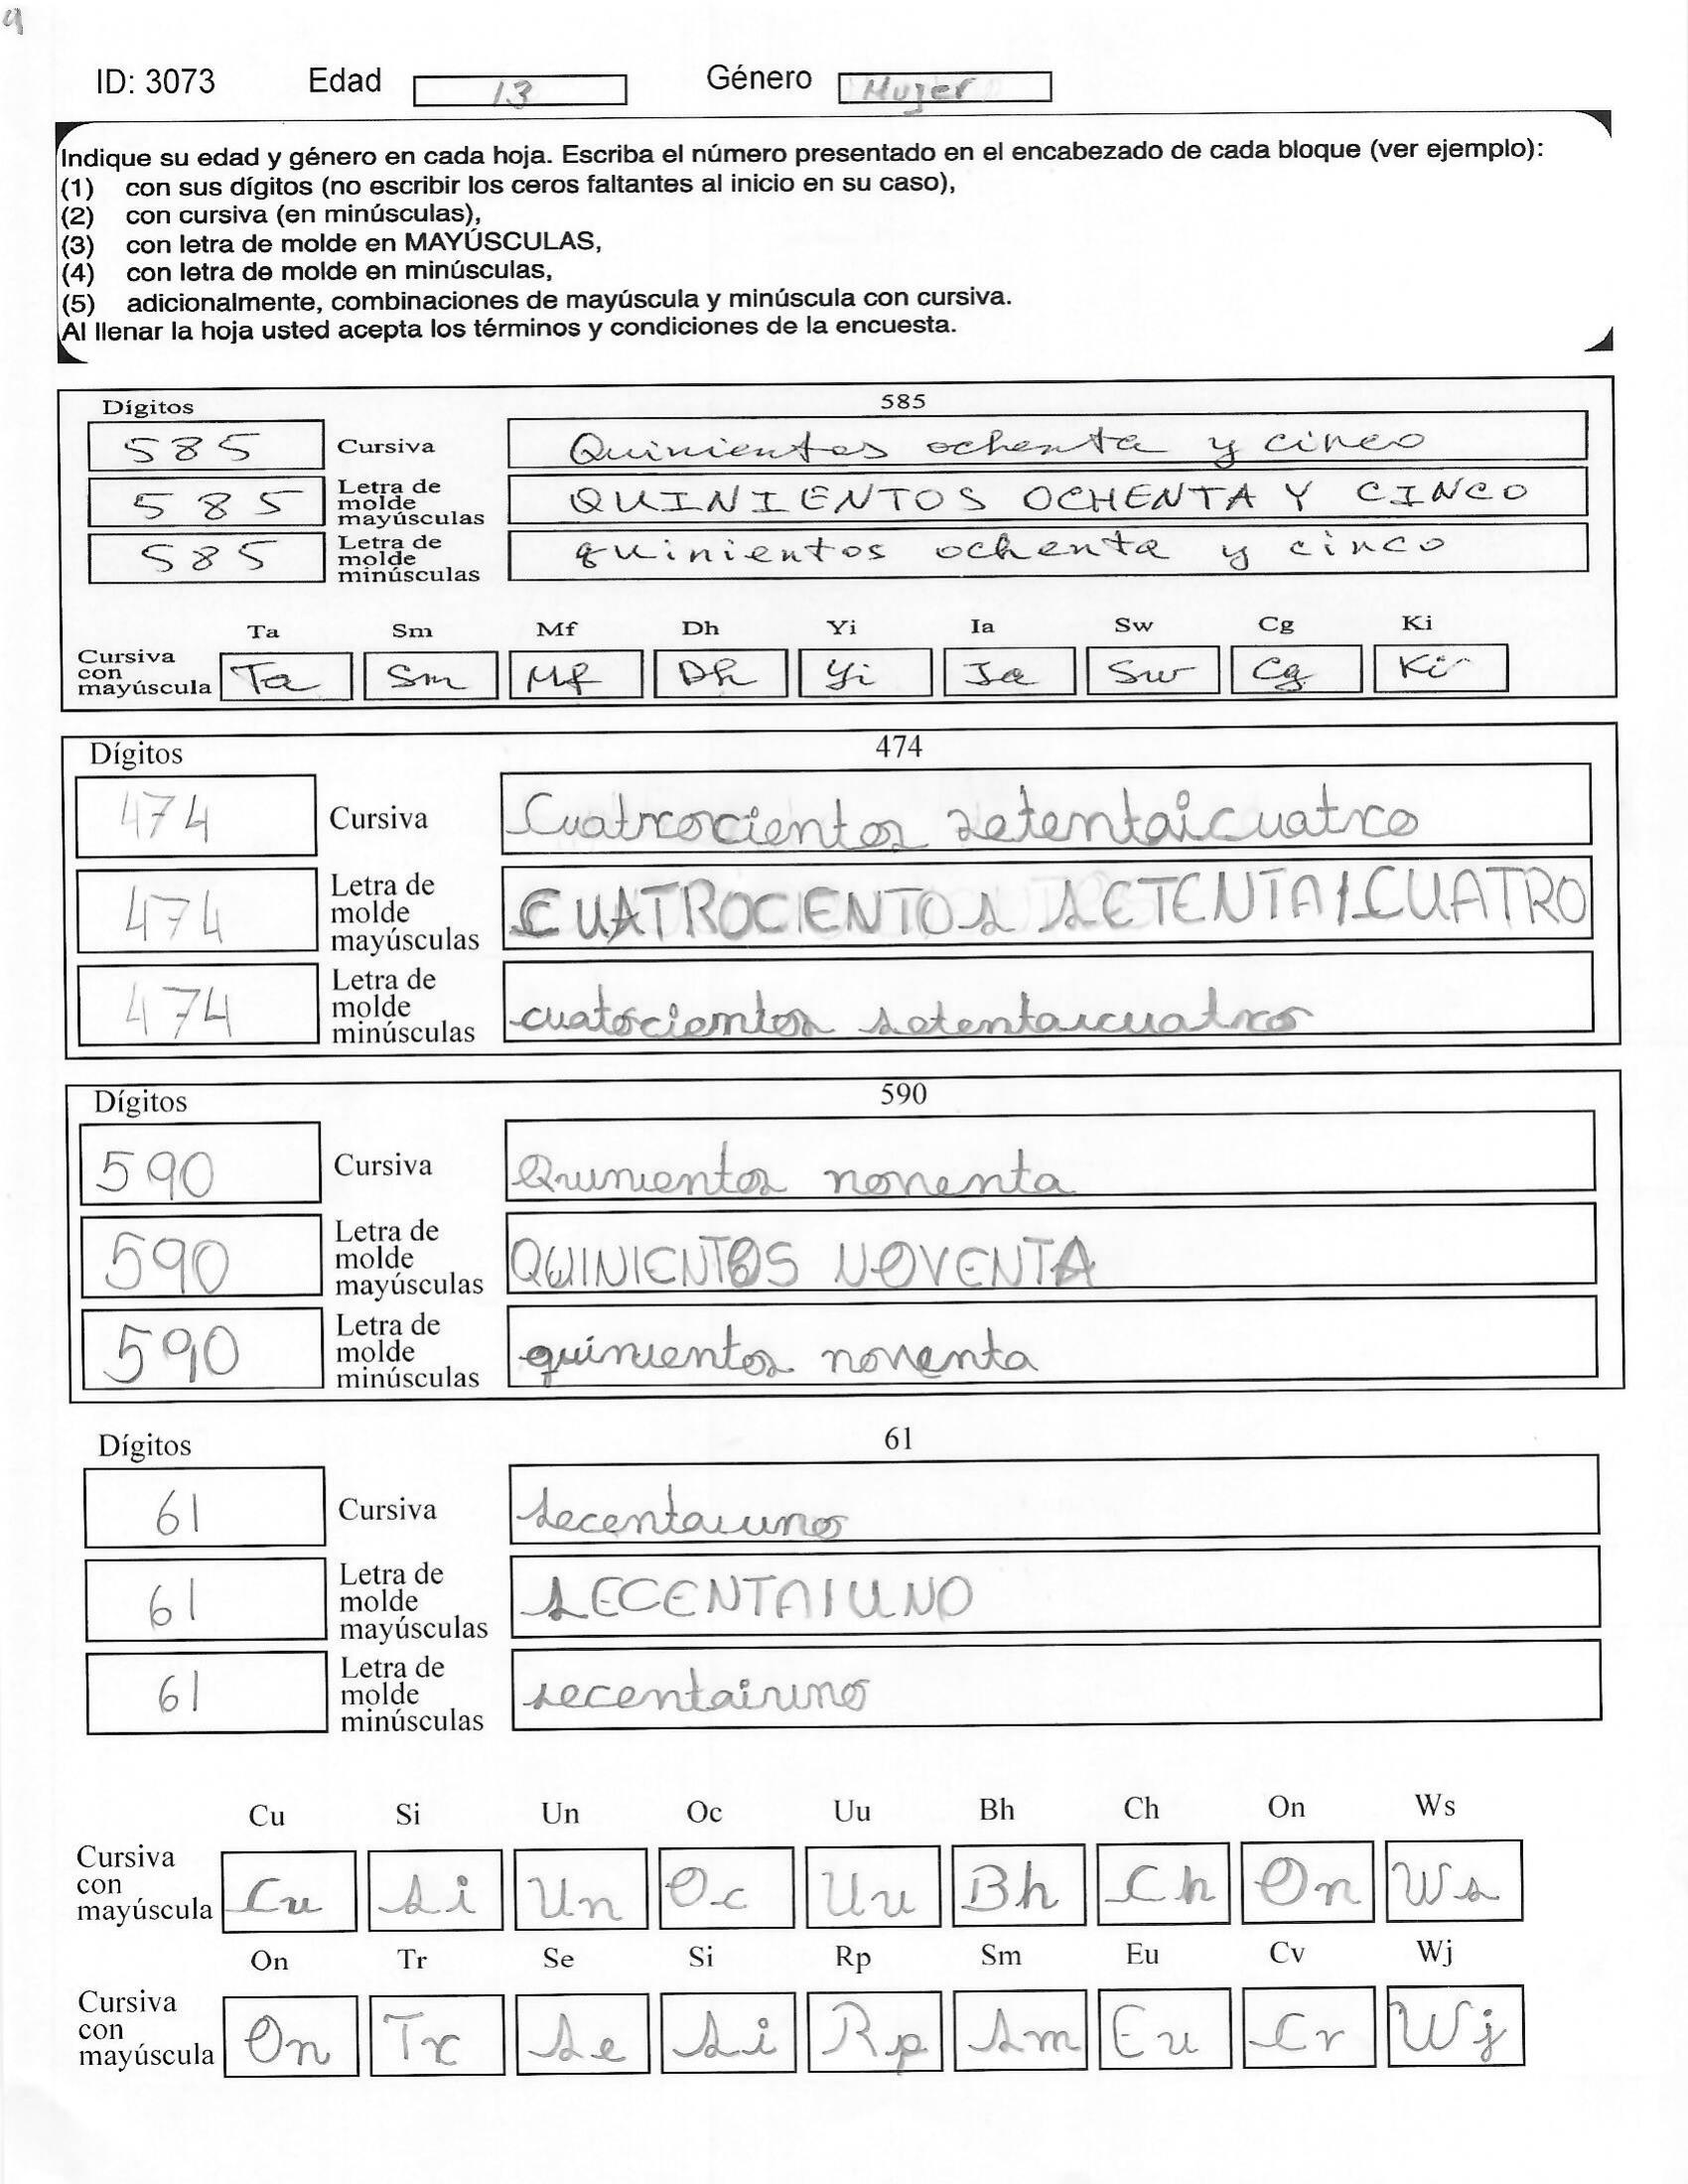 9
ID: 3073 Edad 13 Género Mujer
Indique su edad y género en cada hoja. Escriba el número presentado en el encabezado de cada bloque (ver ejemplo):
(1) con sus dígitos (no escribir los ceros faltantes al inicio en su caso),
(2) con cursiva (en minúsculas),
(3) con letra de molde en MAYÚSCULAS,
(4) con letra de molde en minúsculas,
(5) adicionalmente, combinaciones de mayúscula y minúscula con cursiva.
Al llenar la hoja usted acepta los términos y condiciones de la encuesta.
Dígitos 585
585 Cursiva Quinientos ochenta y cinco
585 Letra de molde mayúsculas QUINIENTOS OCHENTA Y CINCO
585 Letra de molde minúsculas quinientos ochenta y cinco
Ta Sm Mf Dh Yi Ia Sw Cg Ki
Cursiva con mayúscula Ta Sm Mf Dh Yi Ia Sw Cg Ki
Dígitos 474
474 Cursiva Cuatrocientos setentaicuatro
474 Letra de molde mayúsculas CUATROCIENTOS SETENTAICUATRO
474 Letra de molde minúsculas cuatocientos setentaicuatro
Dígitos 590
590 Cursiva Quinientos noventa
590 Letra de molde mayúsculas QUINIENTOS NOVENTA
590 Letra de molde minúsculas quinientos noventa
Dígitos 61
61 Cursiva secentaiuno
61 Letra de molde mayúsculas SECENTAIUNO
61 Letra de molde minúsculas secentaiuno
Cu Si Un Oc Uu Bh Ch On Ws
Cursiva con mayúscula Cu Si Un Oc Uu Bh Ch On Ws
On Tr Se Si Rp Sm Eu Cv Wj
Cursiva con mayúscula On Tr Se Si Rp Sm Eu Cv Wj